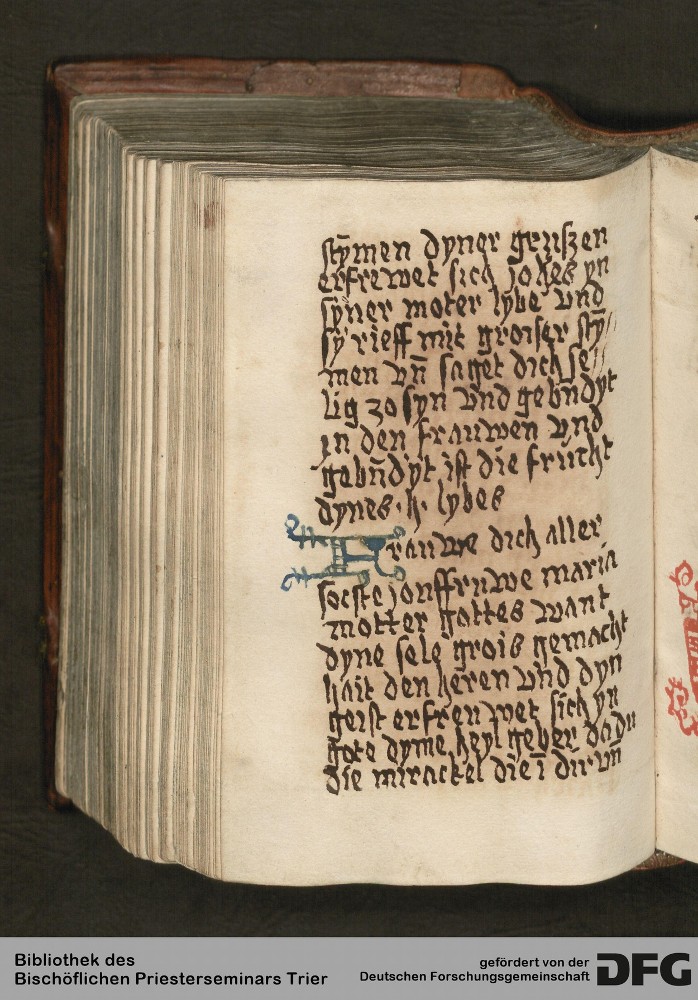 sty̅men dyner grüszen
erfrewet sich joh̅es yn
syner moter lybe vnd
sy rieff mit groiser sty̅//
men vn̅ saget dich se//
lig zo syn vnd gebn̅dyt
in den frauwen vnd
gebn̅dyt ist die frücht
dynes · h · lybes
Frauwe dich aller
soeste jonffruwe maria
motter gottes want
dyne sele grois gemacht
hait den heren vnd dyn
geist erfreuwet sich yn
gote dyme heyl geber dadu
die mirackel die i̅ dir vn̅
Bibliothek des
Bischöflichen Priesterseminars Trier
gefördert von der
Deutschen Forschungsgemeinschaft
DFG